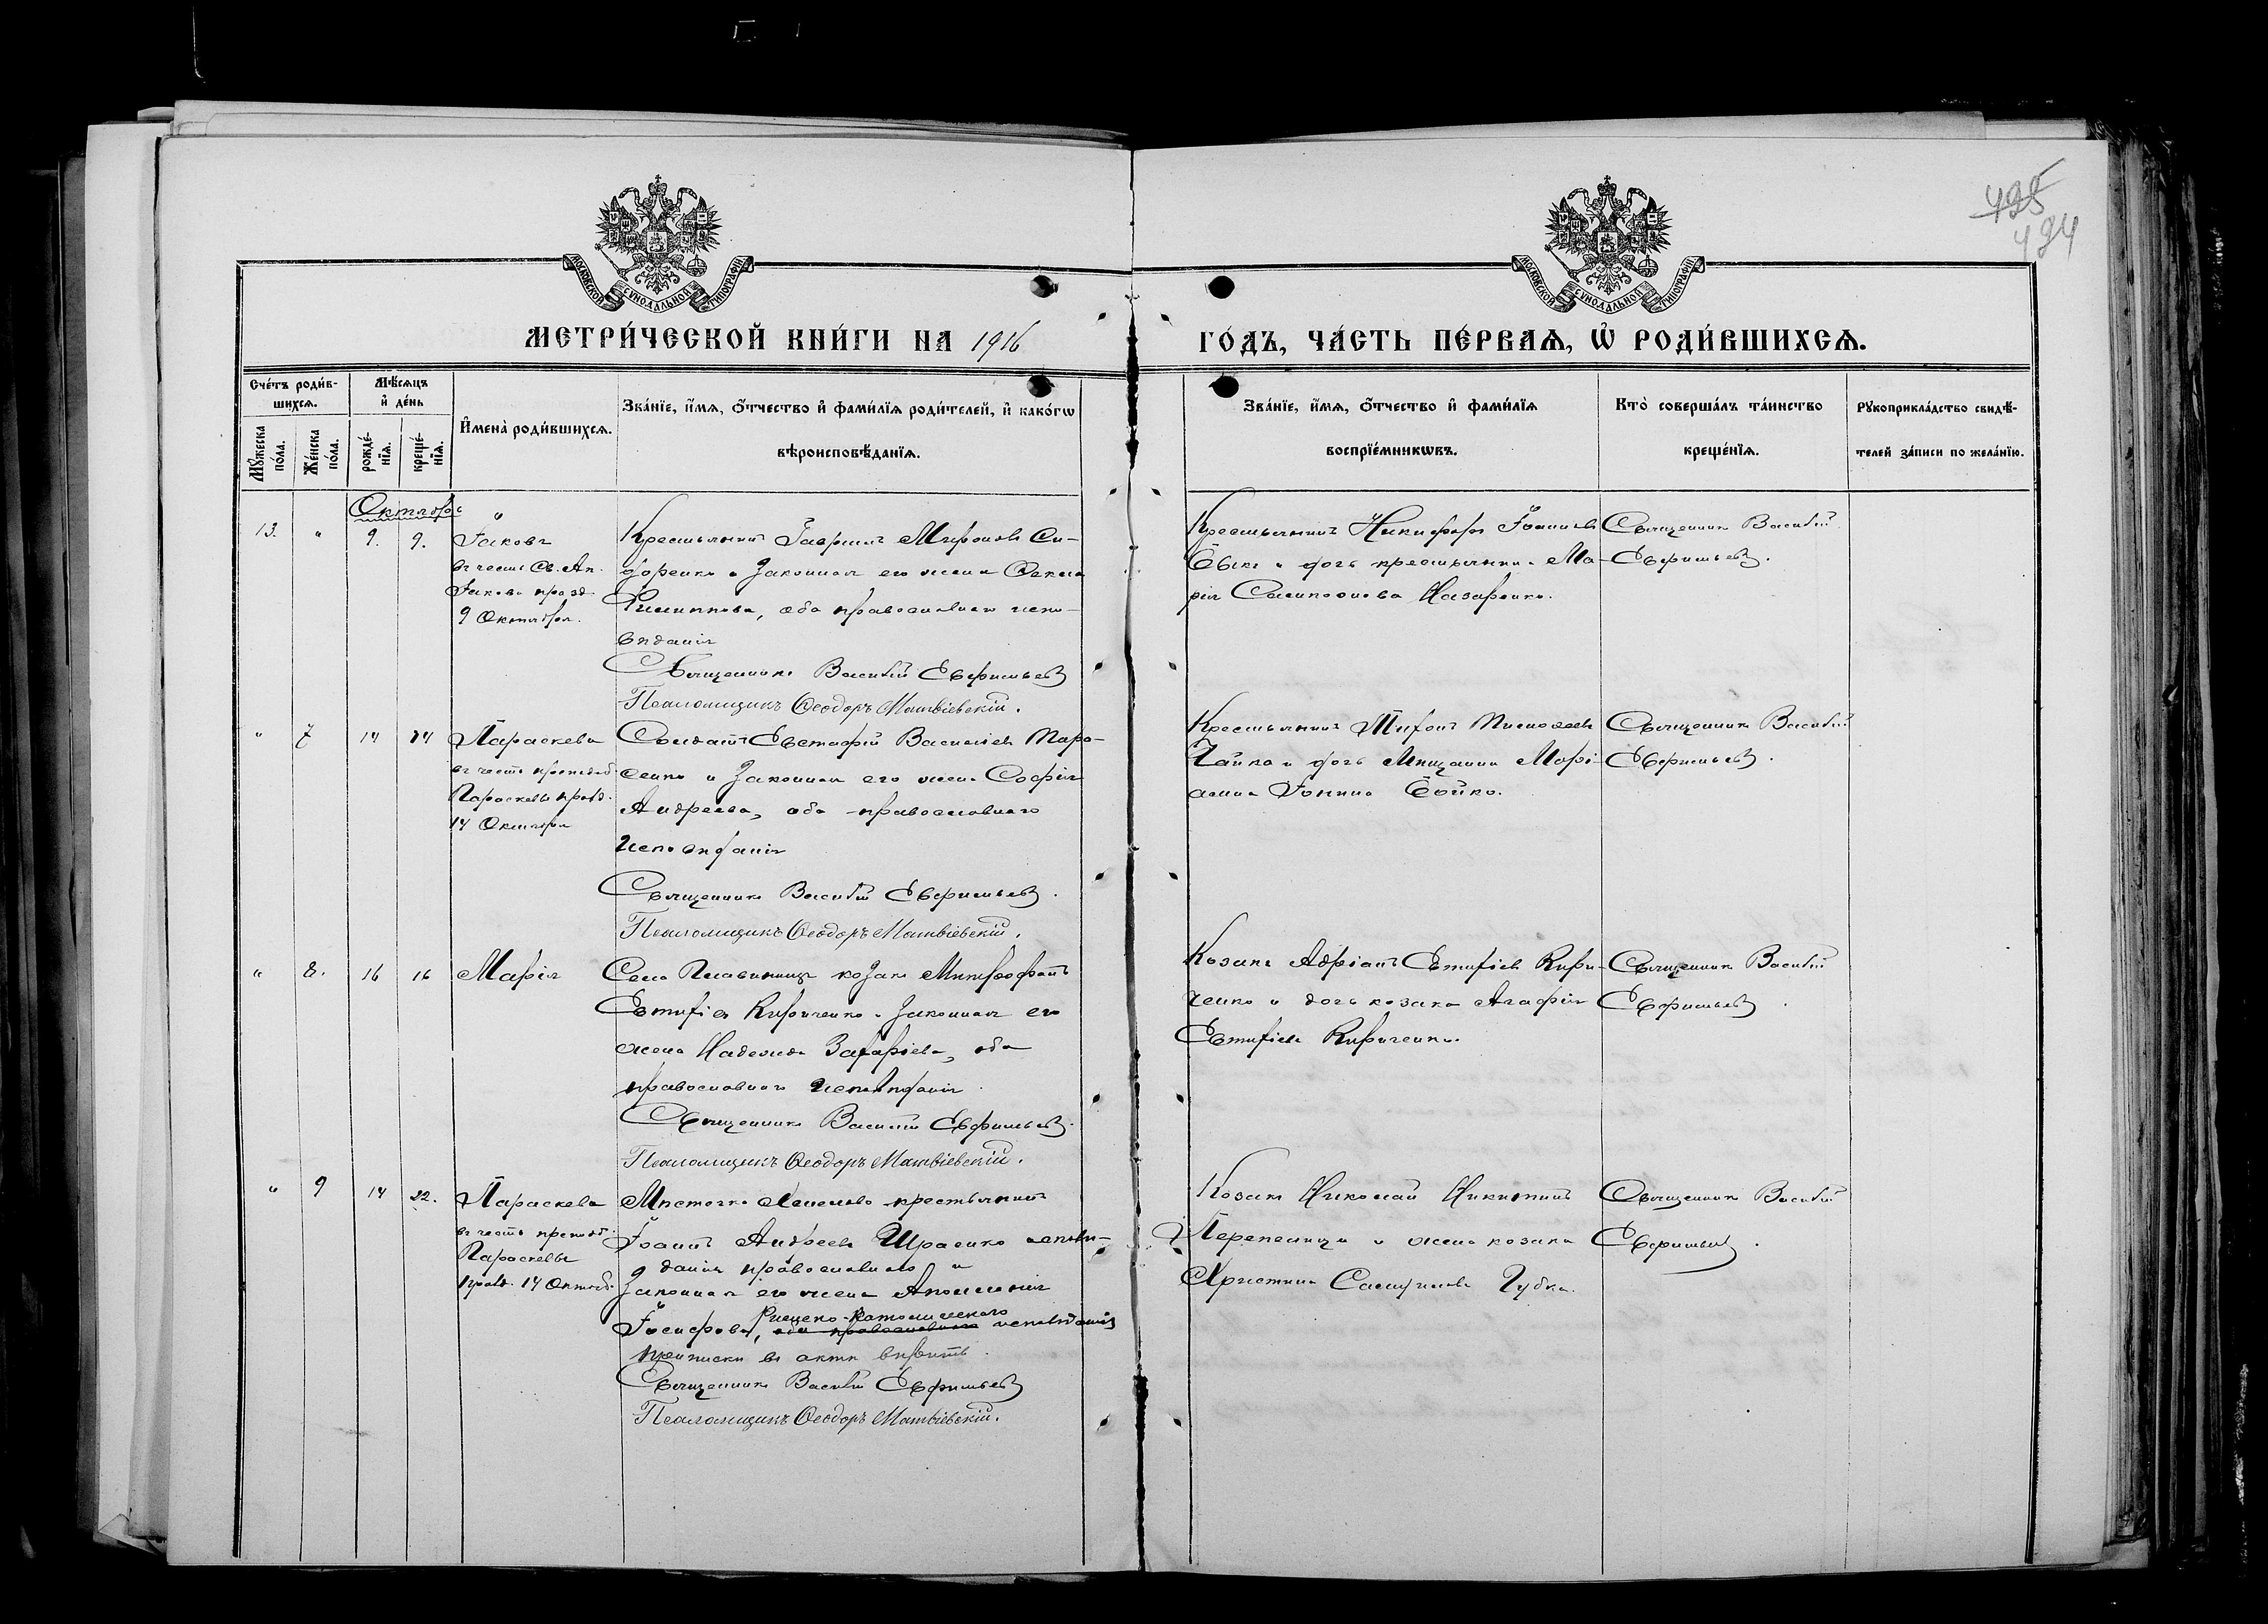 495
494
МОСКОВСКОЙ СУНОДАЛЬНОЙ ТИПОГРАФІИ
МОСКОВСКОЙ СУНОДАЛЬНОЙ ТИПОГРАФІИ
МЕТРИ́ЧЕСКОЙ КНИ́ГИ НА 1916
ГО́ДЪ, ЧА́СТЬ ПЕ́РВАѦ, Ѡ РОДИ́ВШИХСѦ.
Сче́тъ роди́в-
шихсѧ.
Мꙋ́жеска по́ла.
Же́нска по́ла.
Мѣ́сѧцъ
и де́нь
рожде́-
нїѧ.
креще́-
нїѧ.
И҆мена̀ роди́вшихсѧ.
Зва́нїе, и҆́мѧ, ѻ҆́тчество и҆ фами́лїѧ роди́телей, и҆ како́гѡ
вѣроисповѣ́данїѧ.
Зва́нїе, и҆́мѧ, ѻ҆́тчество и҆ фами́лїѧ
воспрїе́мникѡвъ.
Кто̀ соверша́лъ та́инство
креще́нїѧ.
Рꙋкоприкла́дство свидѣ́-
телей за́писи по жела́нїю.
Октябрь
13. " 9. 9. Іаковъ
въ честь Св. Ап.
Іакова празд.
9 Октября.
Крестьянинъ Гавріилъ Мироновъ Си-
доренко и законная его жена Ѳекла
Филиппова, оба православнаго испо-
вѣданія
Священникъ Василій Евфимьевъ
Псаломщикъ Ѳеодоръ Матвіевскій.
Крестьянинъ Никифоръ Іоанновъ
и дочь крестьянина Ма-
рія Назаренко.
Священникъ Василій
Евфимьевъ.
" 7 14 14 Параскева
въ честь преподоб.
Параскевы празд.
14 Октября
Солдатъ Евстафій Васильевъ Тара-
сенко и законная его жена Софія
Андреева, оба православнаго
исповѣданія
Священникъ Василій Евфимьевъ.
Псаломщикъ Ѳеодоръ Матвіевскій.
Крестьянинъ Тимофеевъ
Чайка и дочь Мѣщанина Марі-
Бойко.
Священникъ Василій
Евфимьевъ.
" 8. 16 16 Марія
Села козакъ Митрофанъ
Евтифіевъ Кириченко и законная его
жена Надежда Захаріева, оба
православнаго исповѣданія.
Священникъ Василій Евфимьевъ.
Псаломщикъ Ѳеодоръ Матвіевскій.
Козакъ Адріанъ Евтифіевъ Кири-
ченко и дочь козака Агафія
Евтифіева Кириченко.
Священникъ Василій
Евфимьевъ.
" 9 14 22. Параскева
въ честь преподоб.
Параскевы
празд. 14 Октяб.
Мѣстечка крестьянинъ
Іоаннъ Андреевъ исповѣ-
данія православнаго и
законная его жена Аполлонія
Іосифова, Римско-Католическаго
оба православнаго исповѣданія
приписки въ актѣ вѣрить.
Священникъ Василій Евфимьевъ
Псаломщикъ Ѳеодоръ Матвіевскій.
Козакъ Николай Никитинъ
Перепелица и жена козака
Христина Губка.
Священникъ Василій
Евфимьевъ.